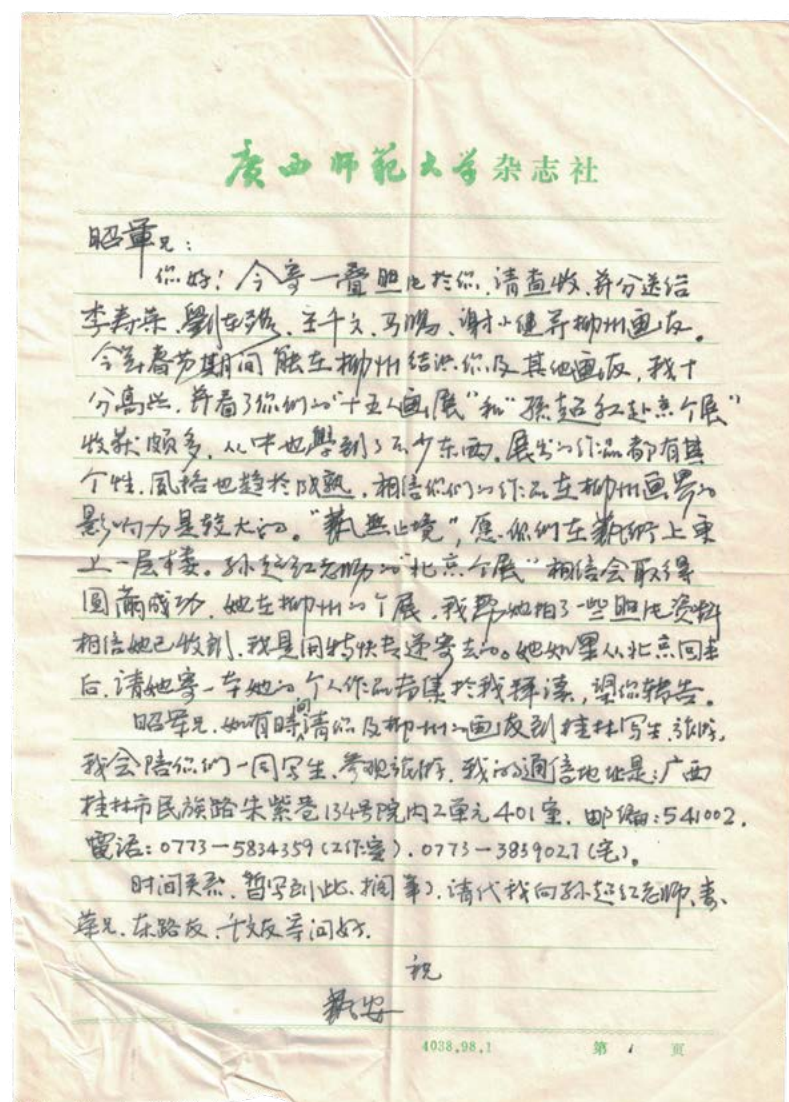 广西师范大学杂志社
昭華兄：
你好！今寄一叠胆片於你，请查收，并分送给
李寿荣、劉东路、王千文、马鵬、谢小健等柳州画友。
今年春节期间能在柳州结识你及其他画友，我十
分高兴，并看了你们的“十五人画展”和“孫超红赴京个展”
收获頗多，从中也學到了不少东西。展出的作品都有其
个性，風格也趋於成熟，相信你们的作品在柳州画界的
影响力是较大的。“藝無止境”，愿你们在藝術上更
上一层楼。孙超红老师的“北京个展”相信会取得
圆满成功，她在柳州的个展，我帮她拍了一些胆片资料
相信她已收到，我是用特快专递寄去的。她如果从北京回来
后，请她寄一本她的个人作品专集於我拜读，望你转告。
昭華兄，如有時間请你及柳州的画友到桂林写生、旅游，
我会陪你们一同写生、参观旅游，我的通信地址是：广西
桂林市民族路朱紫巷134号院内2单元401室，邮编：541002，
電话：0773—5834359（工作室），0773—3839027（宅）。
时间关系，暂写到此、搁筆），请代我向孙超红老师、寿
荣兄、东路友、千文友等问好。
祝
藝安
4038.98.1 第 1 页